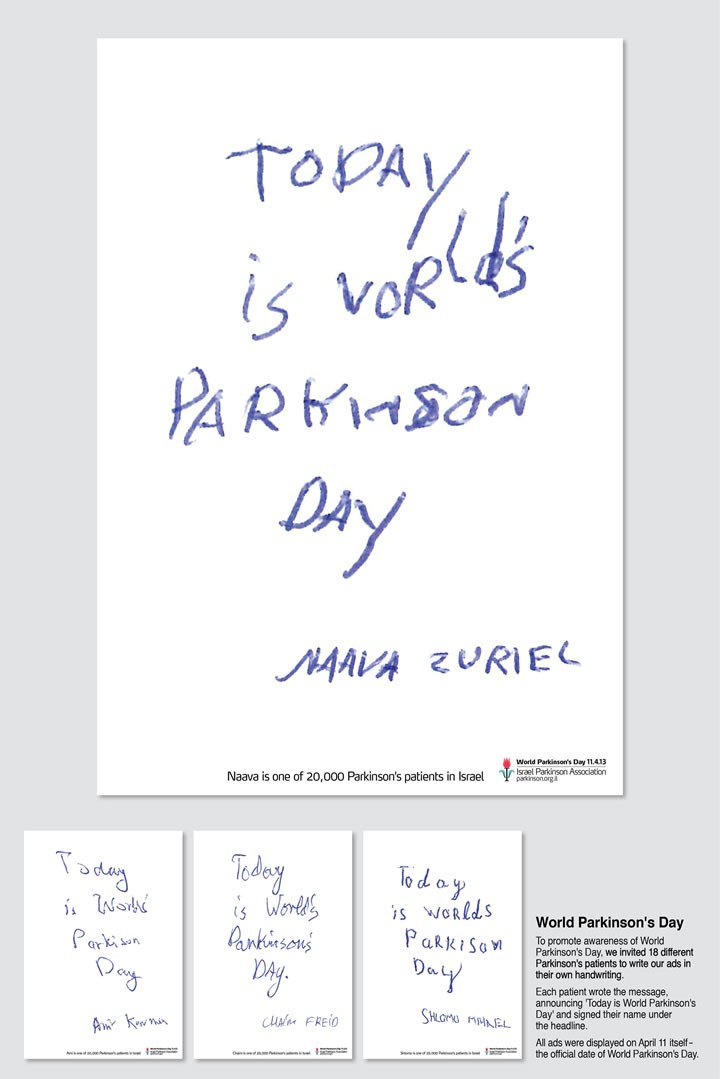 TODAY
is VORld's
PARKINSON
DAY
NAAVA ZURIEL
Naava is one of 20,000 Parkinson's patients in Israel
World Parkinson's Day 11.4.13
Israel Parkinson Association
parkinson.org.il
Today
is World's
Parkison
Day
Amir
Amir is one of 20,000 Parkinson's patients in Israel
Today
is World's
Parkinson's
DAy.
CHAim FREiD
Chaim is one of 20,000 Parkinson's patients in Israel
Today
is worlds
Parkison
Day
SHLOMO MIHAEL
Shlomo is one of 20,000 Parkinson's patients in Israel
World Parkinson's Day
To promote awareness of World
Parkinson's Day, we invited 18 different
Parkinson's patients to write our ads in
their own handwriting.
Each patient wrote the message,
announcing 'Today is World Parkinson's
Day' and signed their name under
the headline.
All ads were displayed on April 11 itself-
the official date of World Parkinson's Day.